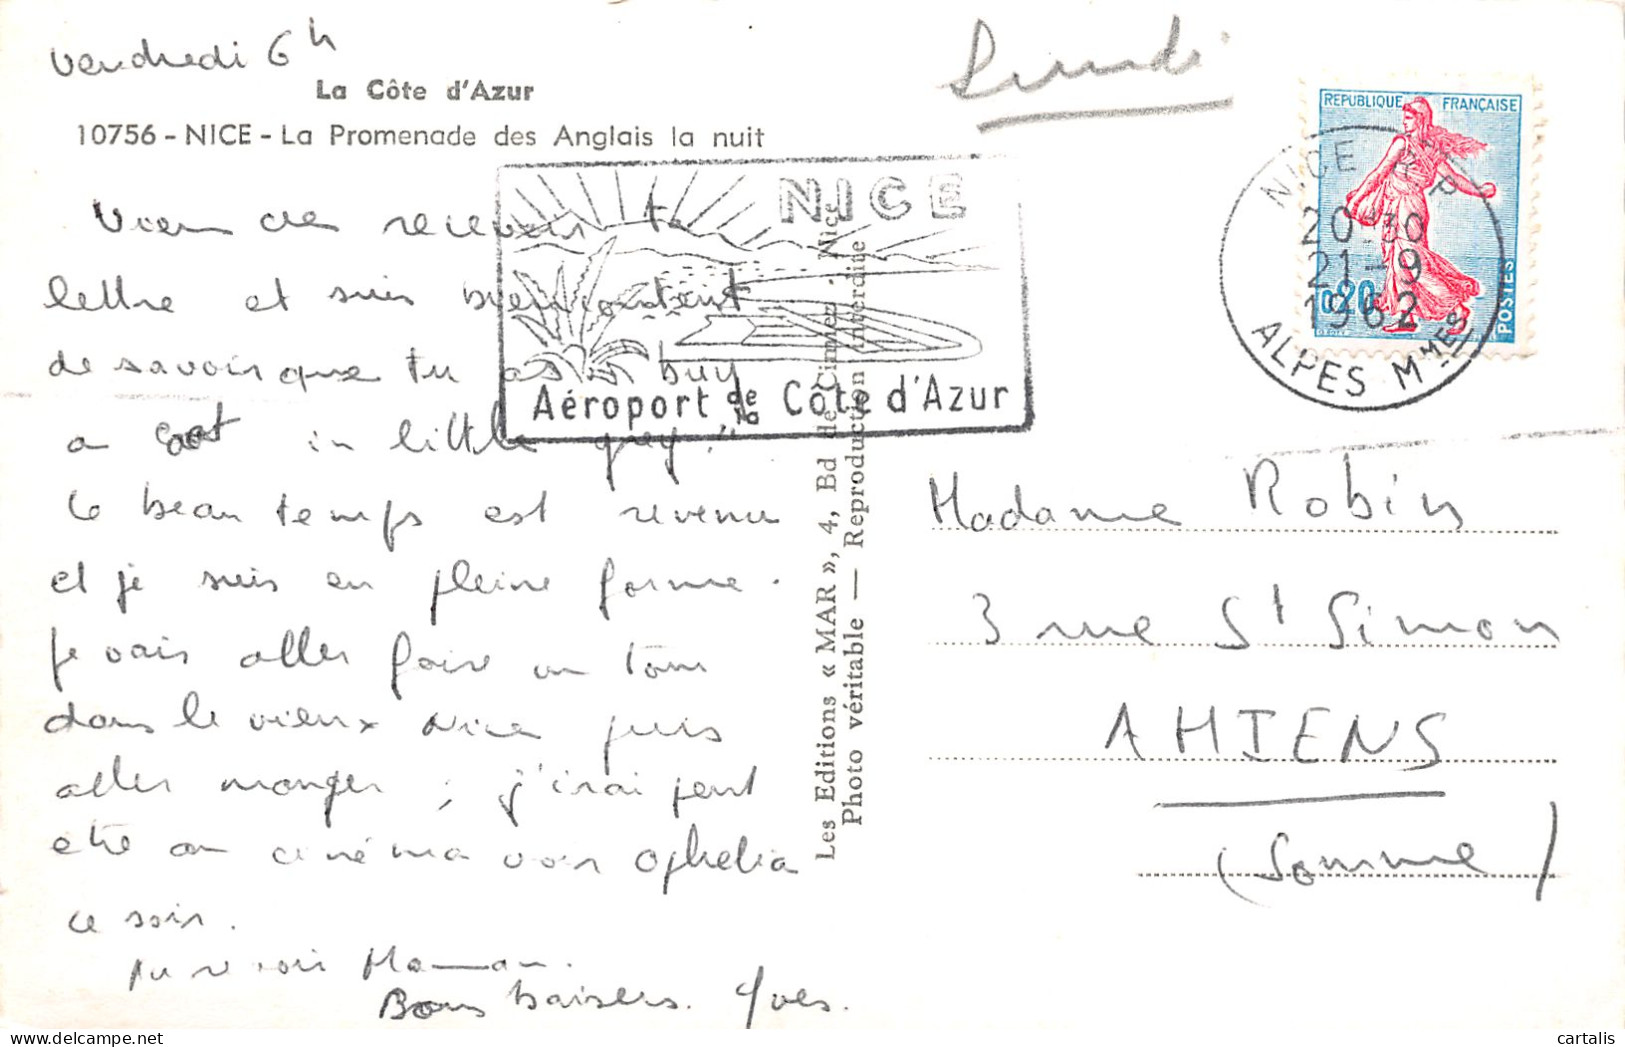 Vendredi 6h
La Côte d'Azur
10756 - NICE - La Promenade des Anglais la nuit
Viens de recevoir ta
lettre et suis bien content
de savoir que tu as "buy
a coat in little grey".
Le beau temps est revenu
et je suis en pleine forme.
Je vais aller faire un tour
dans le vieux Nice puis
aller manger ; j'irai peut
etre au cinéma voir Ophelia
ce soir.
Au revoir Maman.
Bons baisers. Yves.
NICE
Aéroport de la Côte d'Azur
Les Editions « MAR », 4, Bd de Cimiez - Nice
Photo véritable — Reproduction interdite
Lundi
REPUBLIQUE FRANÇAISE
0,20
POSTES
NICE R.P.
20-30
21-9
1962
ALPES MMES
Madame Robin
3 rue St Simon
AMIENS
(Somme)
cartalis